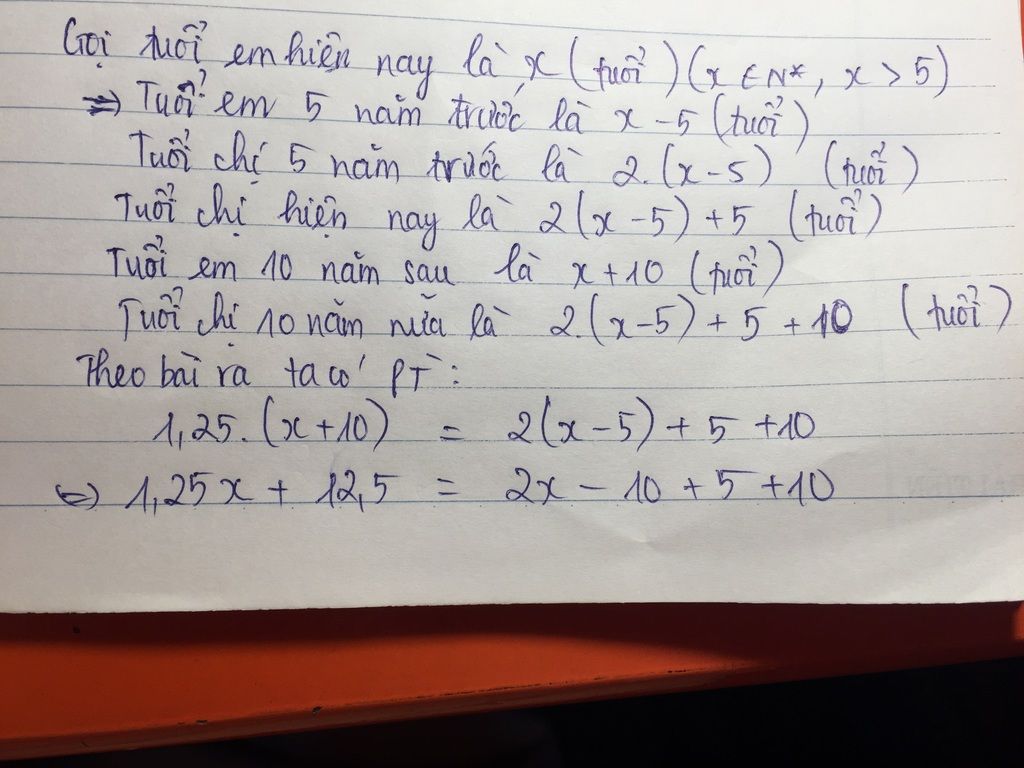 Gọi tuổi em hiện nay là x (tuổi) (x ∈ N*, x > 5)
=> Tuổi em 5 năm trước là x - 5 (tuổi)
Tuổi chị 5 năm trước là 2.(x-5) (tuổi)
Tuổi chị hiện nay là 2(x-5)+5 (tuổi)
Tuổi em 10 năm sau là x+10 (tuổi)
Tuổi chị 10 năm nữa là 2.(x-5)+5+10 (tuổi)
Theo bài ra ta có PT:
1,25.(x+10) = 2(x-5)+5+10
<=> 1,25x + 12,5 = 2x - 10 + 5 + 10